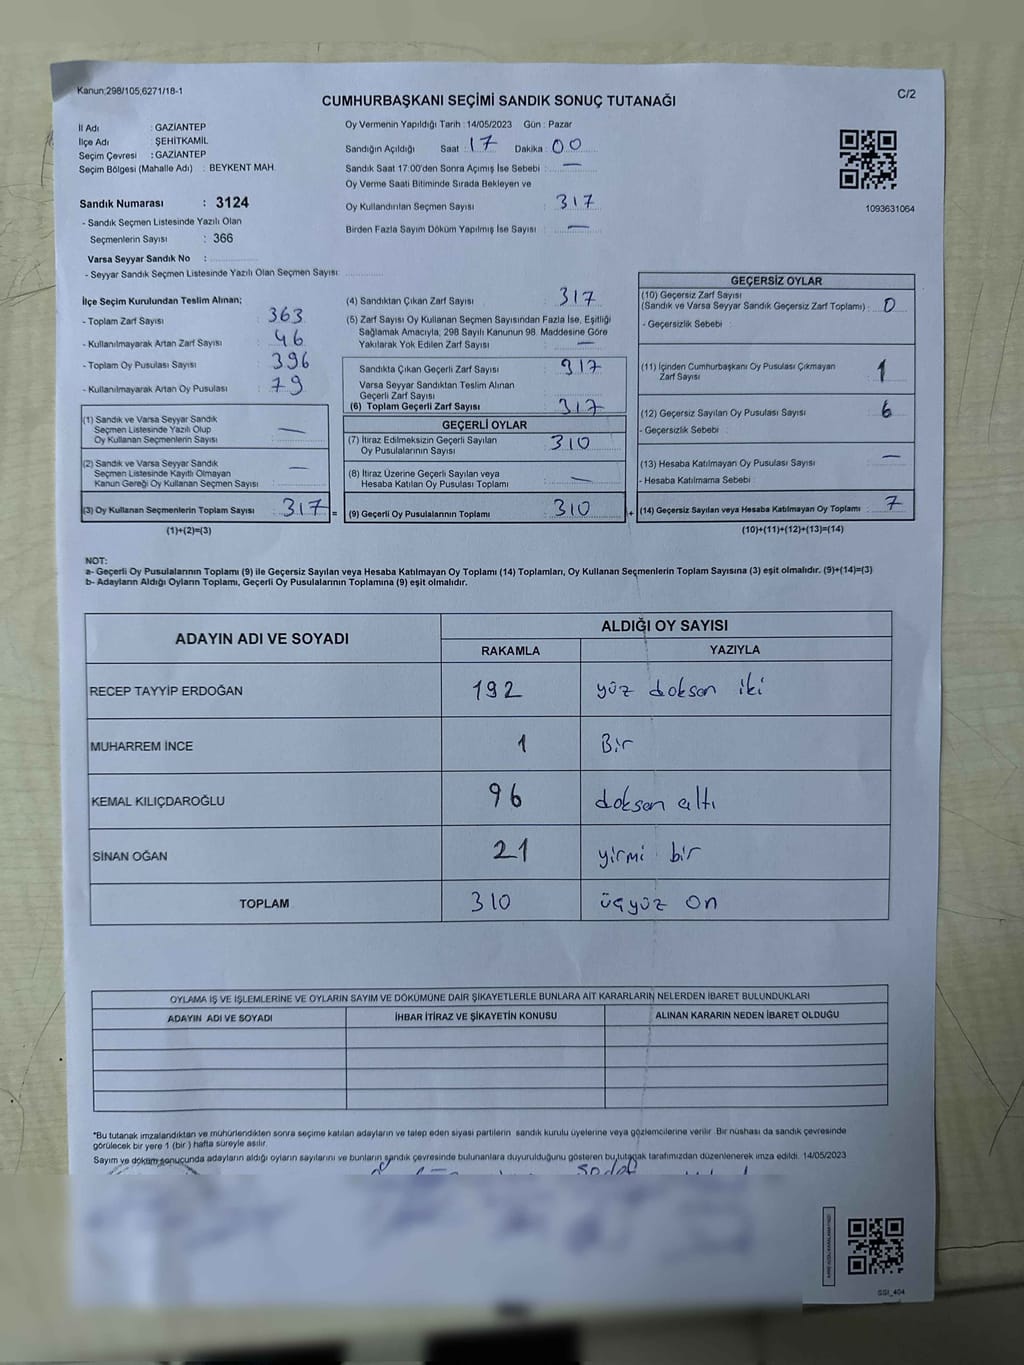 Kanun;298/105,6271/18-1
C/2
CUMHURBAŞKANI SEÇİMİ SANDIK SONUÇ TUTANAĞI
İl Adı : GAZİANTEP
İlçe Adı : ŞEHİTKAMİL
Seçim Çevresi : GAZİANTEP
Seçim Bölgesi (Mahalle Adı) : BEYKENT MAH.
Sandık Numarası : 3124
- Sandık Seçmen Listesinde Yazılı Olan
Seçmenlerin Sayısı : 366
Varsa Seyyar Sandık No :
- Seyyar Sandık Seçmen Listesinde Yazılı Olan Seçmen Sayısı:
Oy Vermenin Yapıldığı Tarih : 14/05/2023 Gün : Pazar
Sandığın Açıldığı Saat : 17 Dakika : 00
Sandık Saat 17:00'den Sonra Açımış İse Sebebi : —
Oy Verme Saati Bitiminde Sırada Bekleyen ve
Oy Kullandırılan Seçmen Sayısı : 317
Birden Fazla Sayım Döküm Yapılmış İse Sayısı : —
1093631064
İlçe Seçim Kurulundan Teslim Alınan;
- Toplam Zarf Sayısı : 363
- Kullanılmayarak Artan Zarf Sayısı : 46
- Toplam Oy Pusulası Sayısı : 396
- Kullanılmayarak Artan Oy Pusulası : 79
(1) Sandık ve Varsa Seyyar Sandık
Seçmen Listesinde Yazılı Olup
Oy Kullanan Seçmenlerin Sayısı : —
(2) Sandık ve Varsa Seyyar Sandık
Seçmen Listesinde Kayıtlı Olmayan
Kanun Gereği Oy Kullanan Seçmen Sayısı : —
(3) Oy Kullanan Seçmenlerin Toplam Sayısı : 317
(1)+(2)=(3)
=
(4) Sandıktan Çıkan Zarf Sayısı : 317
(5) Zarf Sayısı Oy Kullanan Seçmen Sayısından Fazla İse, Eşitliği
Sağlamak Amacıyla, 298 Sayılı Kanunun 98. Maddesine Göre
Yakılarak Yok Edilen Zarf Sayısı : —
Sandıkta Çıkan Geçerli Zarf Sayısı : 317
Varsa Seyyar Sandıktan Teslim Alınan
Geçerli Zarf Sayısı :
(6) Toplam Geçerli Zarf Sayısı : 317
GEÇERLİ OYLAR
(7) İtiraz Edilmeksizin Geçerli Sayılan
Oy Pusulalarının Sayısı : 310
(8) İtiraz Üzerine Geçerli Sayılan veya
Hesaba Katılan Oy Pusulası Toplamı : —
(9) Geçerli Oy Pusulalarının Toplamı : 310
+
GEÇERSİZ OYLAR
(10) Geçersiz Zarf Sayısı
(Sandık ve Varsa Seyyar Sandık Geçersiz Zarf Toplamı) : 0
- Geçersizlik Sebebi :
(11) İçinden Cumhurbaşkanı Oy Pusulası Çıkmayan
Zarf Sayısı : 1
(12) Geçersiz Sayılan Oy Pusulası Sayısı : 6
- Geçersizlik Sebebi :
(13) Hesaba Katılmayan Oy Pusulası Sayısı : —
- Hesaba Katılmama Sebebi :
(14) Geçersiz Sayılan veya Hesaba Katılmayan Oy Toplamı : 7
(10)+(11)+(12)+(13)=(14)
NOT:
a- Geçerli Oy Pusulalarının Toplamı (9) ile Geçersiz Sayılan veya Hesaba Katılmayan Oy Toplamı (14) Toplamları, Oy Kullanan Seçmenlerin Toplam Sayısına (3) eşit olmalıdır. (9)+(14)=(3)
b- Adayların Aldığı Oyların Toplamı, Geçerli Oy Pusulalarının Toplamına (9) eşit olmalıdır.
ADAYIN ADI VE SOYADI ALDIĞI OY SAYISI
RAKAMLA YAZIYLA
RECEP TAYYİP ERDOĞAN 192 yüz doksan iki
MUHARREM İNCE 1 Bir
KEMAL KILIÇDAROĞLU 96 doksan altı
SİNAN OĞAN 21 yirmi bir
TOPLAM 310 üçyüz on
OYLAMA İŞ VE İŞLEMLERİNE VE OYLARIN SAYIM VE DÖKÜMÜNE DAİR ŞİKAYETLERLE BUNLARA AİT KARARLARIN NELERDEN İBARET BULUNDUKLARI
ADAYIN ADI VE SOYADI İHBAR İTİRAZ VE ŞİKAYETİN KONUSU ALINAN KARARIN NEDEN İBARET OLDUĞU
*Bu tutanak imzalandıktan ve mühürlendikten sonra seçime katılan adayların ve talep eden siyasi partilerin sandık kurulu üyelerine veya gözlemcilerine verilir. Bir nüshası da sandık çevresinde
görülecek bir yere 1 (bir ) hafta süreyle asılır.
Sayım ve döküm sonucunda adayların aldığı oyların sayılarını ve bunların sandık çevresinde bulunanlara duyurulduğunu gösteren bu tutanak tarafımızdan düzenlenerek imza edildi. 14/05/2023
SSI_404